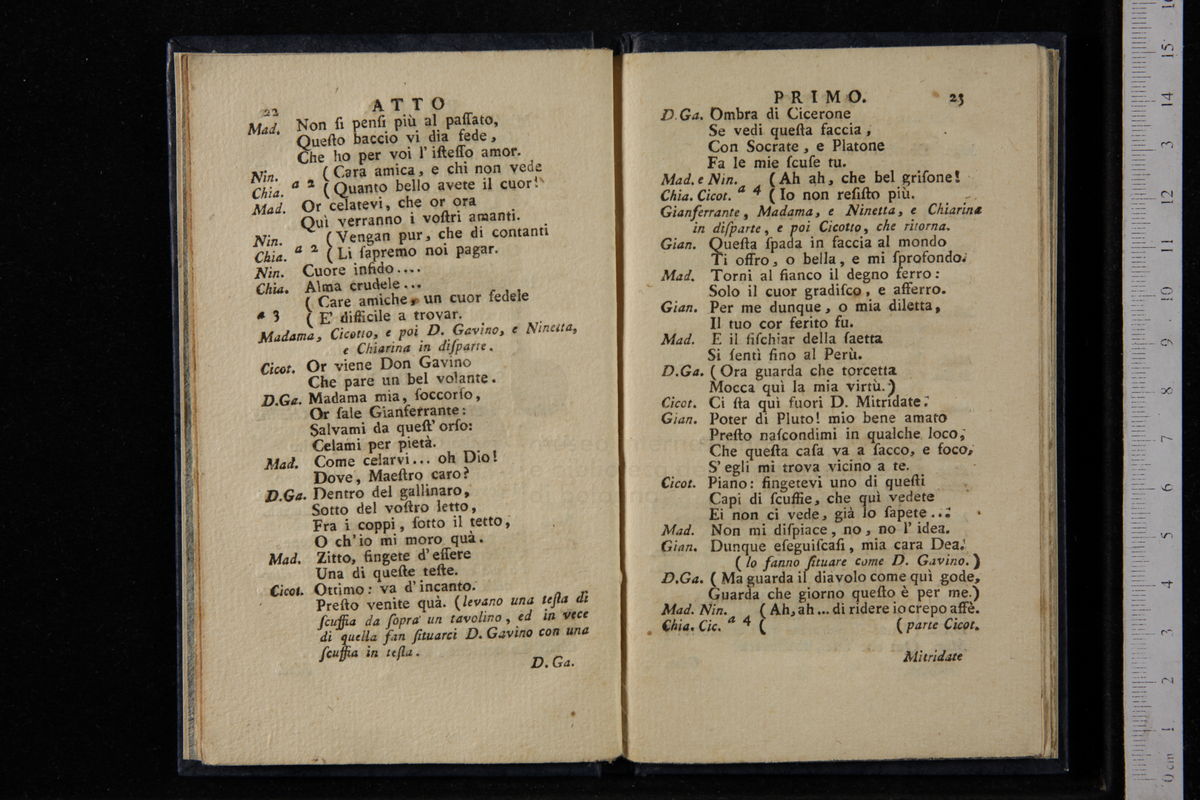 22
ATTO
Mad. Non ſi penſi più al paſſato,
Queſto baccio vi dia fede,
Che ho per voi l'iſteſſo amor.
Nin. ( Cara amica, e chi non vede
Chia. a 2 ( Quanto bello avete il cuor!
Mad. Or celatevi, che or ora
Quì verranno i voſtri amanti.
Nin. ( Vengan pur, che di contanti
Chia. a 2 ( Li ſapremo noi pagar.
Nin. Cuore infido....
Chia. Alma crudele...
( Care amiche, un cuor fedele
a 3 ( E' difficile a trovar.
Madama, Cicotto, e poi D. Gavino, e Ninetta,
e Chiarina in diſparte.
Cicot. Or viene Don Gavino
Che pare un bel volante.
D.Ga. Madama mia, ſoccorſo,
Or ſale Gianferrante:
Salvami da queſt' orſo:
Celami per pietà.
Mad. Come celarvi... oh Dio!
Dove, Maeſtro caro?
D.Ga. Dentro del gallinaro,
Sotto del voſtro letto,
Fra i coppi, ſotto il tetto,
O ch'io mi moro quà.
Mad. Zitto, fingete d'eſſere
Una di queſte teſte.
Cicot. Ottimo: va d'incanto.
Preſto venite quà. (levano una teſta di
ſcuffia da ſopra un tavolino, ed in vece
di quella fan ſituarci D. Gavino con una
ſcuffia in teſta.
D. Ga.
PRIMO. 23
D.Ga. Ombra di Cicerone
Se vedi queſta faccia,
Con Socrate, e Platone
Fa le mie ſcuſe tu.
Mad. e Nin. ( Ah ah, che bel griſone!
Chia. Cicot. a 4 ( Io non reſiſto più.
Gianferrante, Madama, e Ninetta, e Chiarina
in diſparte, e poi Cicotto, che ritorna.
Gian. Queſta ſpada in faccia al mondo
Ti offro, o bella, e mi ſprofondo.
Mad. Torni al fianco il degno ferro:
Solo il cuor gradiſco, e afferro.
Gian. Per me dunque, o mia diletta,
Il tuo cor ferito fu.
Mad. E il fiſchiar della ſaetta
Si ſentì fino al Perù.
D.Ga. ( Ora guarda che torcetta
Mocca quì la mia virtù.)
Cicot. Ci ſta quì fuori D. Mitridate.
Gian. Poter di Pluto! mio bene amato
Preſto naſcondimi in qualche loco,
Che queſta caſa va a ſacco, e foco,
S' egli mi trova vicino a te.
Cicot. Piano: fingetevi uno di queſti
Capi di ſcuffie, che quì vedete
Ei non ci vede, già lo ſapete...
Mad. Non mi diſpiace, no, no l' idea.
Gian. Dunque eſeguiſcaſi, mia cara Dea.
( lo fanno ſituare come D. Gavino. )
D.Ga. ( Ma guarda il diavolo come quì gode,
Guarda che giorno queſto è per me.)
Mad. Nin. ( Ah, ah... di ridere io crepo affè.
Chia. Cic. a 4 ( ( parte Cicot.
Mitridate